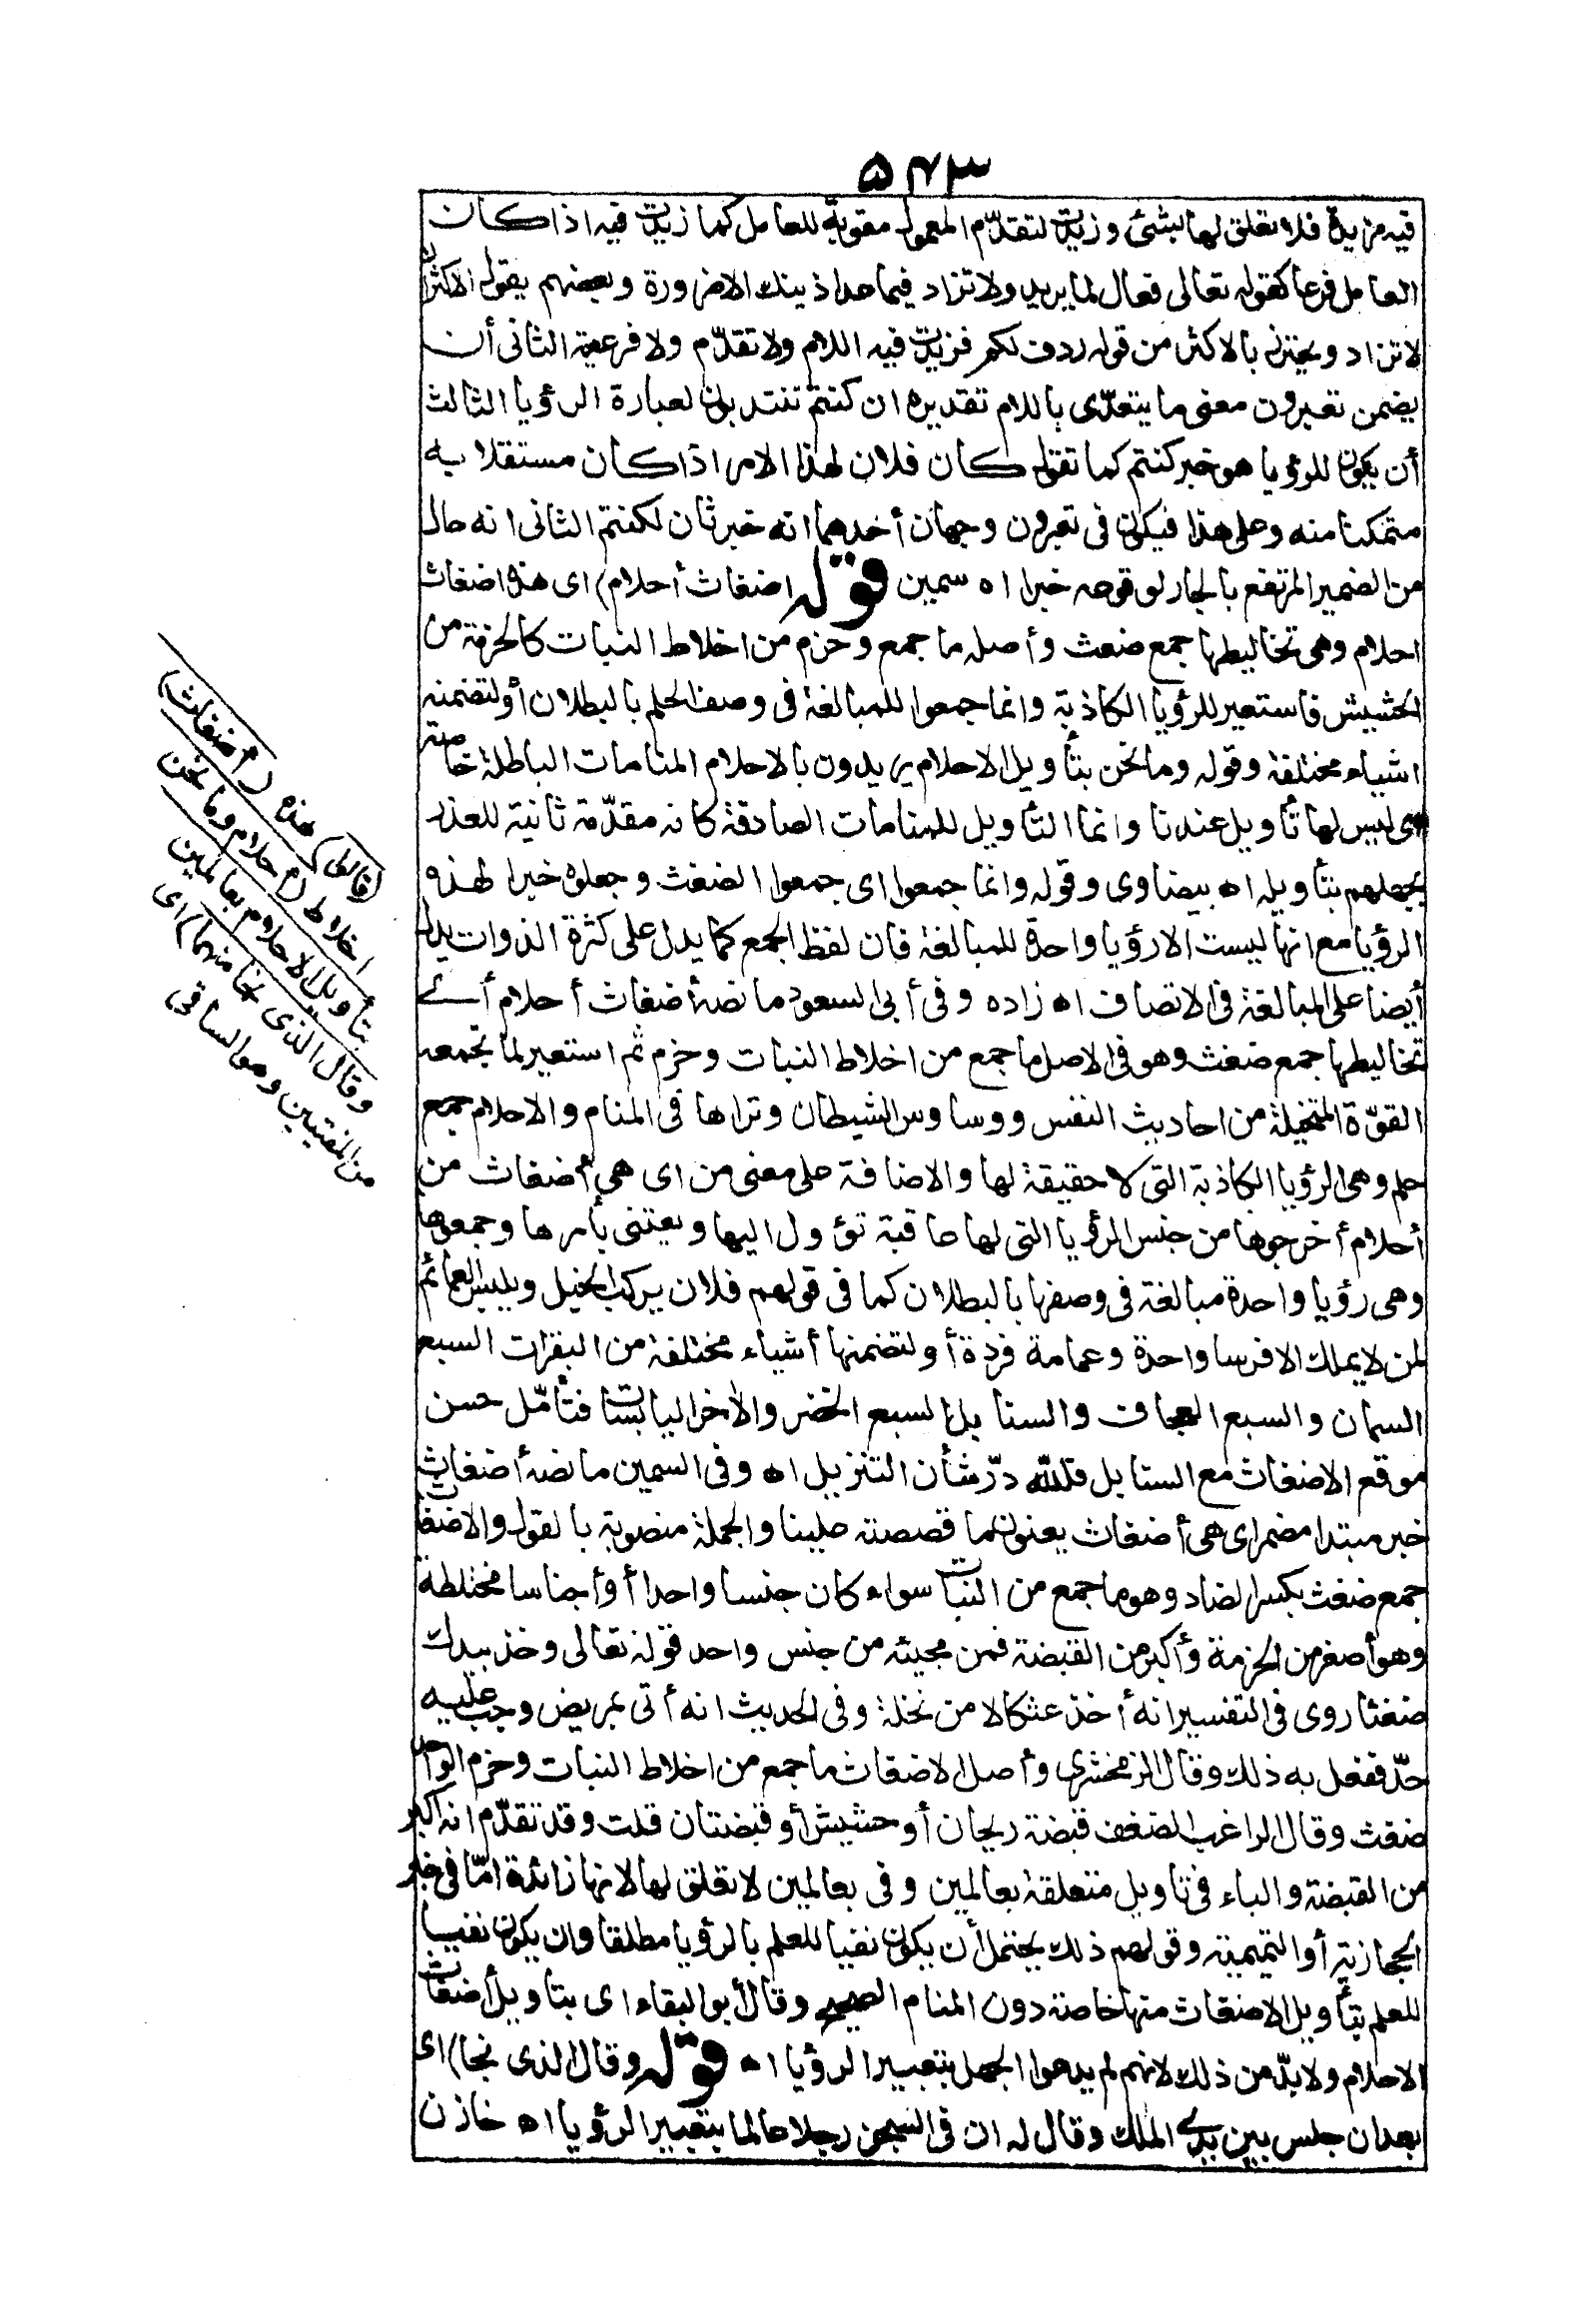 ۵۴۳
فيه مزيدة فلا تعلق لها بشئ وزيدت لتقدّم المعمول مقوية للعامل كما زيدت فيه اذا كان
العامل فرعا كقوله تعالى فعال لما يريد ولا تزاد فيما عدا ذينك الا ضرورة وبعضهم يقول الاكثر ان
لا تزاد ويحترز بالاكثر من قوله ردف لكم فزيدت فيه اللام ولا تقدّم ولا فرعية الثانى أن
يضمن تعبرون معنى ما يتعدّى باللام تقديره ان كنتم تنتدبون لعبارة الرؤيا الثالث
أن يكون للرؤيا هو خبر كنتم كما تقول كان فلان لهذا الامر اذا كان مستقلا به
متمكنا منه وعلى هذا فيكون فى تعبرون وجهان أحدهما انه خبر ثان لكنتم الثانى انه حال
من الضمير المرتفع بالجار لوقوعه خبرا اه سمين قوله اضغاث أحلام) اى هذه اضغاث
احلام وهى تخاليطها جمع ضغث وأصله ما جمع وحزم من اخلاط النبات كالحزمة من
الحشيش فاستعير للرؤيا الكاذبة وانما جمعوا للمبالغة فى وصف الحلم بالبطلان أو لتضمنه
اشياء مختلفة وقوله وما نحن بتأويل الاحلام يريدون بالاحلام المنامات الباطلة خاصة
اى ليس لها تأويل عندنا وانما التأويل للمنامات الصادقة كانه مقدّمة ثانية للعذر
بجهلهم بتأويله اه بيضاوى وقوله وانما جمعوا اى جمعوا الضغث وجعلوه خبرا لهذه
الرؤيا مع انها ليست الا رؤيا واحدة للمبالغة فان لفظ الجمع كما يدل على كثرة الذوات يدل
أيضا على المبالغة فى الاتصاف اه زاده وفى أبى السعود ما نصه أضغاث أحلام أى
تخاليطها جمع ضغث وهو فى الاصل ما جمع من اخلاط النبات وحزم ثم استعير لما تجمعه
القوّة المتخيلة من احاديث النفس ووساوس الشيطان وتراها فى المنام والاحلام جمع
حلم وهى الرؤيا الكاذبة التى لا حقيقة لها والاضافة على معنى من اى هى أضغاث من
أحلام أخرجوها من جنس الرؤيا التى لها عاقبة تؤول اليها ويعتنى بأمرها وجمعوها
وهى رؤيا واحدة مبالغة فى وصفها بالبطلان كما فى قولهم فلان يركب الخيل ويلبس العمائم
لمن لا يملك الا فرسا واحدة وعمامة فردة أو لتضمنها أشياء مختلفة من البقرات السبع
السمان والسبع العجاف والسنابل السبع الخضر والأخر اليابسات فتأمّل حسن
موقع الاضغاث مع السنابل فلله درّ شأن التنزيل اه وفى السمين ما نصه أضغاث
خبر مبتدا مضمر اى هى أضغاث يعنون ما قصصته علينا والجملة منصوبة بالقول والاضغاث
جمع ضغث بكسر الضاد وهو ما جمع من النبات سواء كان جنسا واحدا أو أجناسا مختلطة
وهو أصغر من الحزمة وأكبر من القبضة فمن مجيئه من جنس واحد قوله تعالى وخذ بيدك
ضغثا روى فى التفسير انه أخذ عثكالا من نخلة وفى الحديث انه أتى بمريض وجب عليه
حدّ ففعل به ذلك وقال الزمخشرى وأصل الاضغاث ما جمع من اخلاط النبات وحزم الواحد
ضغث وقال الراغب الضغف قبضة ريحان أو حشيش أو قبضتان قلت وقد تقدّم انه اكبر
من القبضة والباء فى تاويل متعلقة بعالمين وفى بعالمين لا تعلق لها لانها زائدة امّا فى خبر
الحجازية أو التميمية وقولهم ذلك يحتمل أن يكون نفيا للعلم بالرؤيا مطلقا وان يكون نفيا
للعلم بتأويل الاضغاث منها خاصة دون المنام الصحيح وقال أبو البقاء اى بتاويل أضغاث
الاحلام ولا بدّ من ذلك لانهم لم يدعوا الجهل بتعبير الرؤيا اه قوله وقال الذى نجا) اى
بعد ان جلس بين يدى الملك وقال له ان فى السجن رجلا عالما بتعبير الرؤيا اه خازن
(قالوا) هذه (أضغاث)
اخلاط (احلام وما نحن
بتأويل الاحلام بعالمين
وقال الذى نجا منهما) اى
من الفتيين وهو الساقى